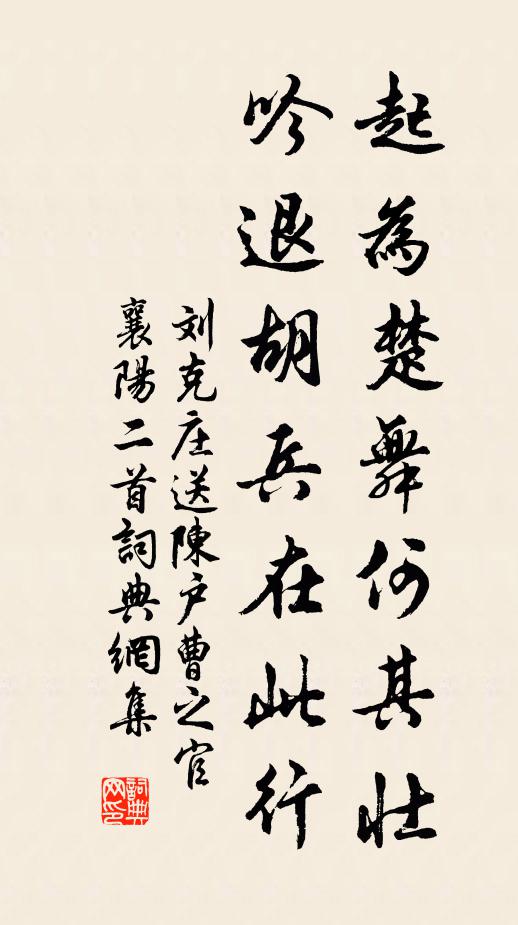 起為楚舞何其壮
吟退胡兵在此行
刘克庄送陳户曹之官
襄陽二首詞典網集
詞典网印